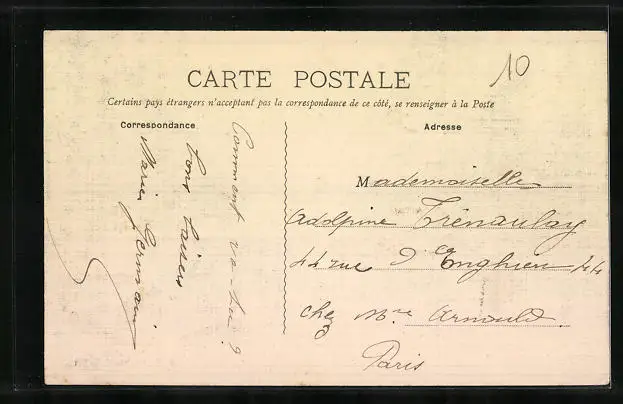 10
CARTE POSTALE
Certains pays étrangers n'acceptant pas la correspondance de ce côté, se renseigner à la Poste
Correspondance
Comment va-tu ?
bons baisers
Marie Germain
Adresse
Mademoiselle
Adolpine Trénaulay
44 rue d'Enghien 44
chez Mme Arnould
Paris